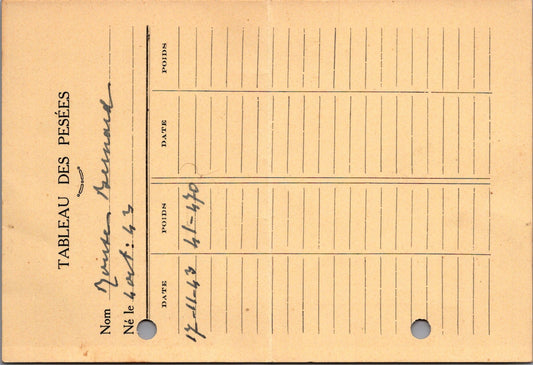 TABLEAU DES PESÉES
Nom Bernard
Né le 4 oct: 43
DATE POIDS DATE POIDS
17-11-43 41-470